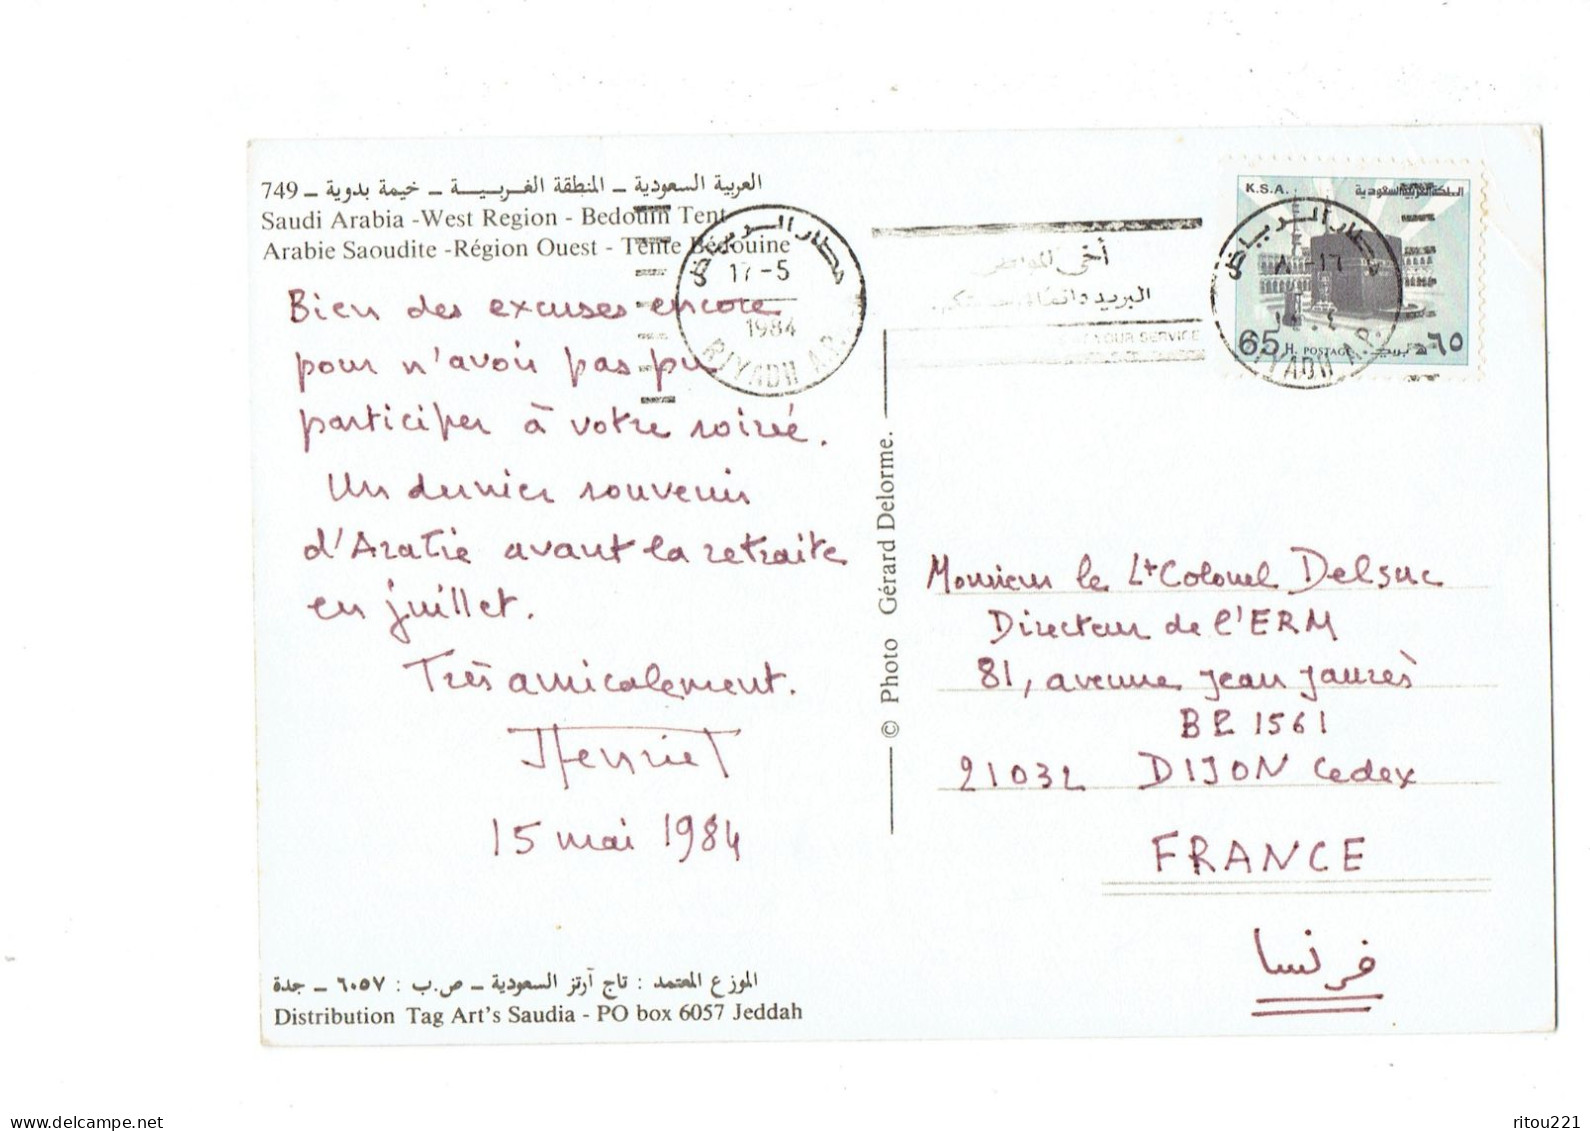 749 ـ العربية السعودية ـ المنطقة الغربيــة ـ خيمة بدوية
Saudi Arabia -West Region - Bedouin Tent
Arabie Saoudite -Région Ouest - Tente Bédouine
Bien des excuses encore
pour n'avoir pas pu
participer à votre soirée.
Un dernier souvenir
d'Arabie avant la retraite
en juillet.
Très amicalement.
JHenriet
15 mai 1984
الموزع المعتمد : تاج آرتز السعودية ـ ص.ب : ٦٠٥٧ ـ جدة
Distribution Tag Art's Saudia - PO box 6057 Jeddah
© Photo Gérard Delorme.
مطار الرياض
17-5
1984
RIYADH A.P.
أخي المواطن
البريد دائماً
YOUR SERVICE
K.S.A.
المملكة العربية السعودية
مطار الرياض
65 H. POSTAGE
بريد ٦٥
RIYADH A.P.
Monsieur le Lt Colonel Delsuc
Directeur de l'ERM
81, avenue Jean Jaurès
BP 1561
21032 DIJON Cedex
FRANCE
فرنسا
ritou221